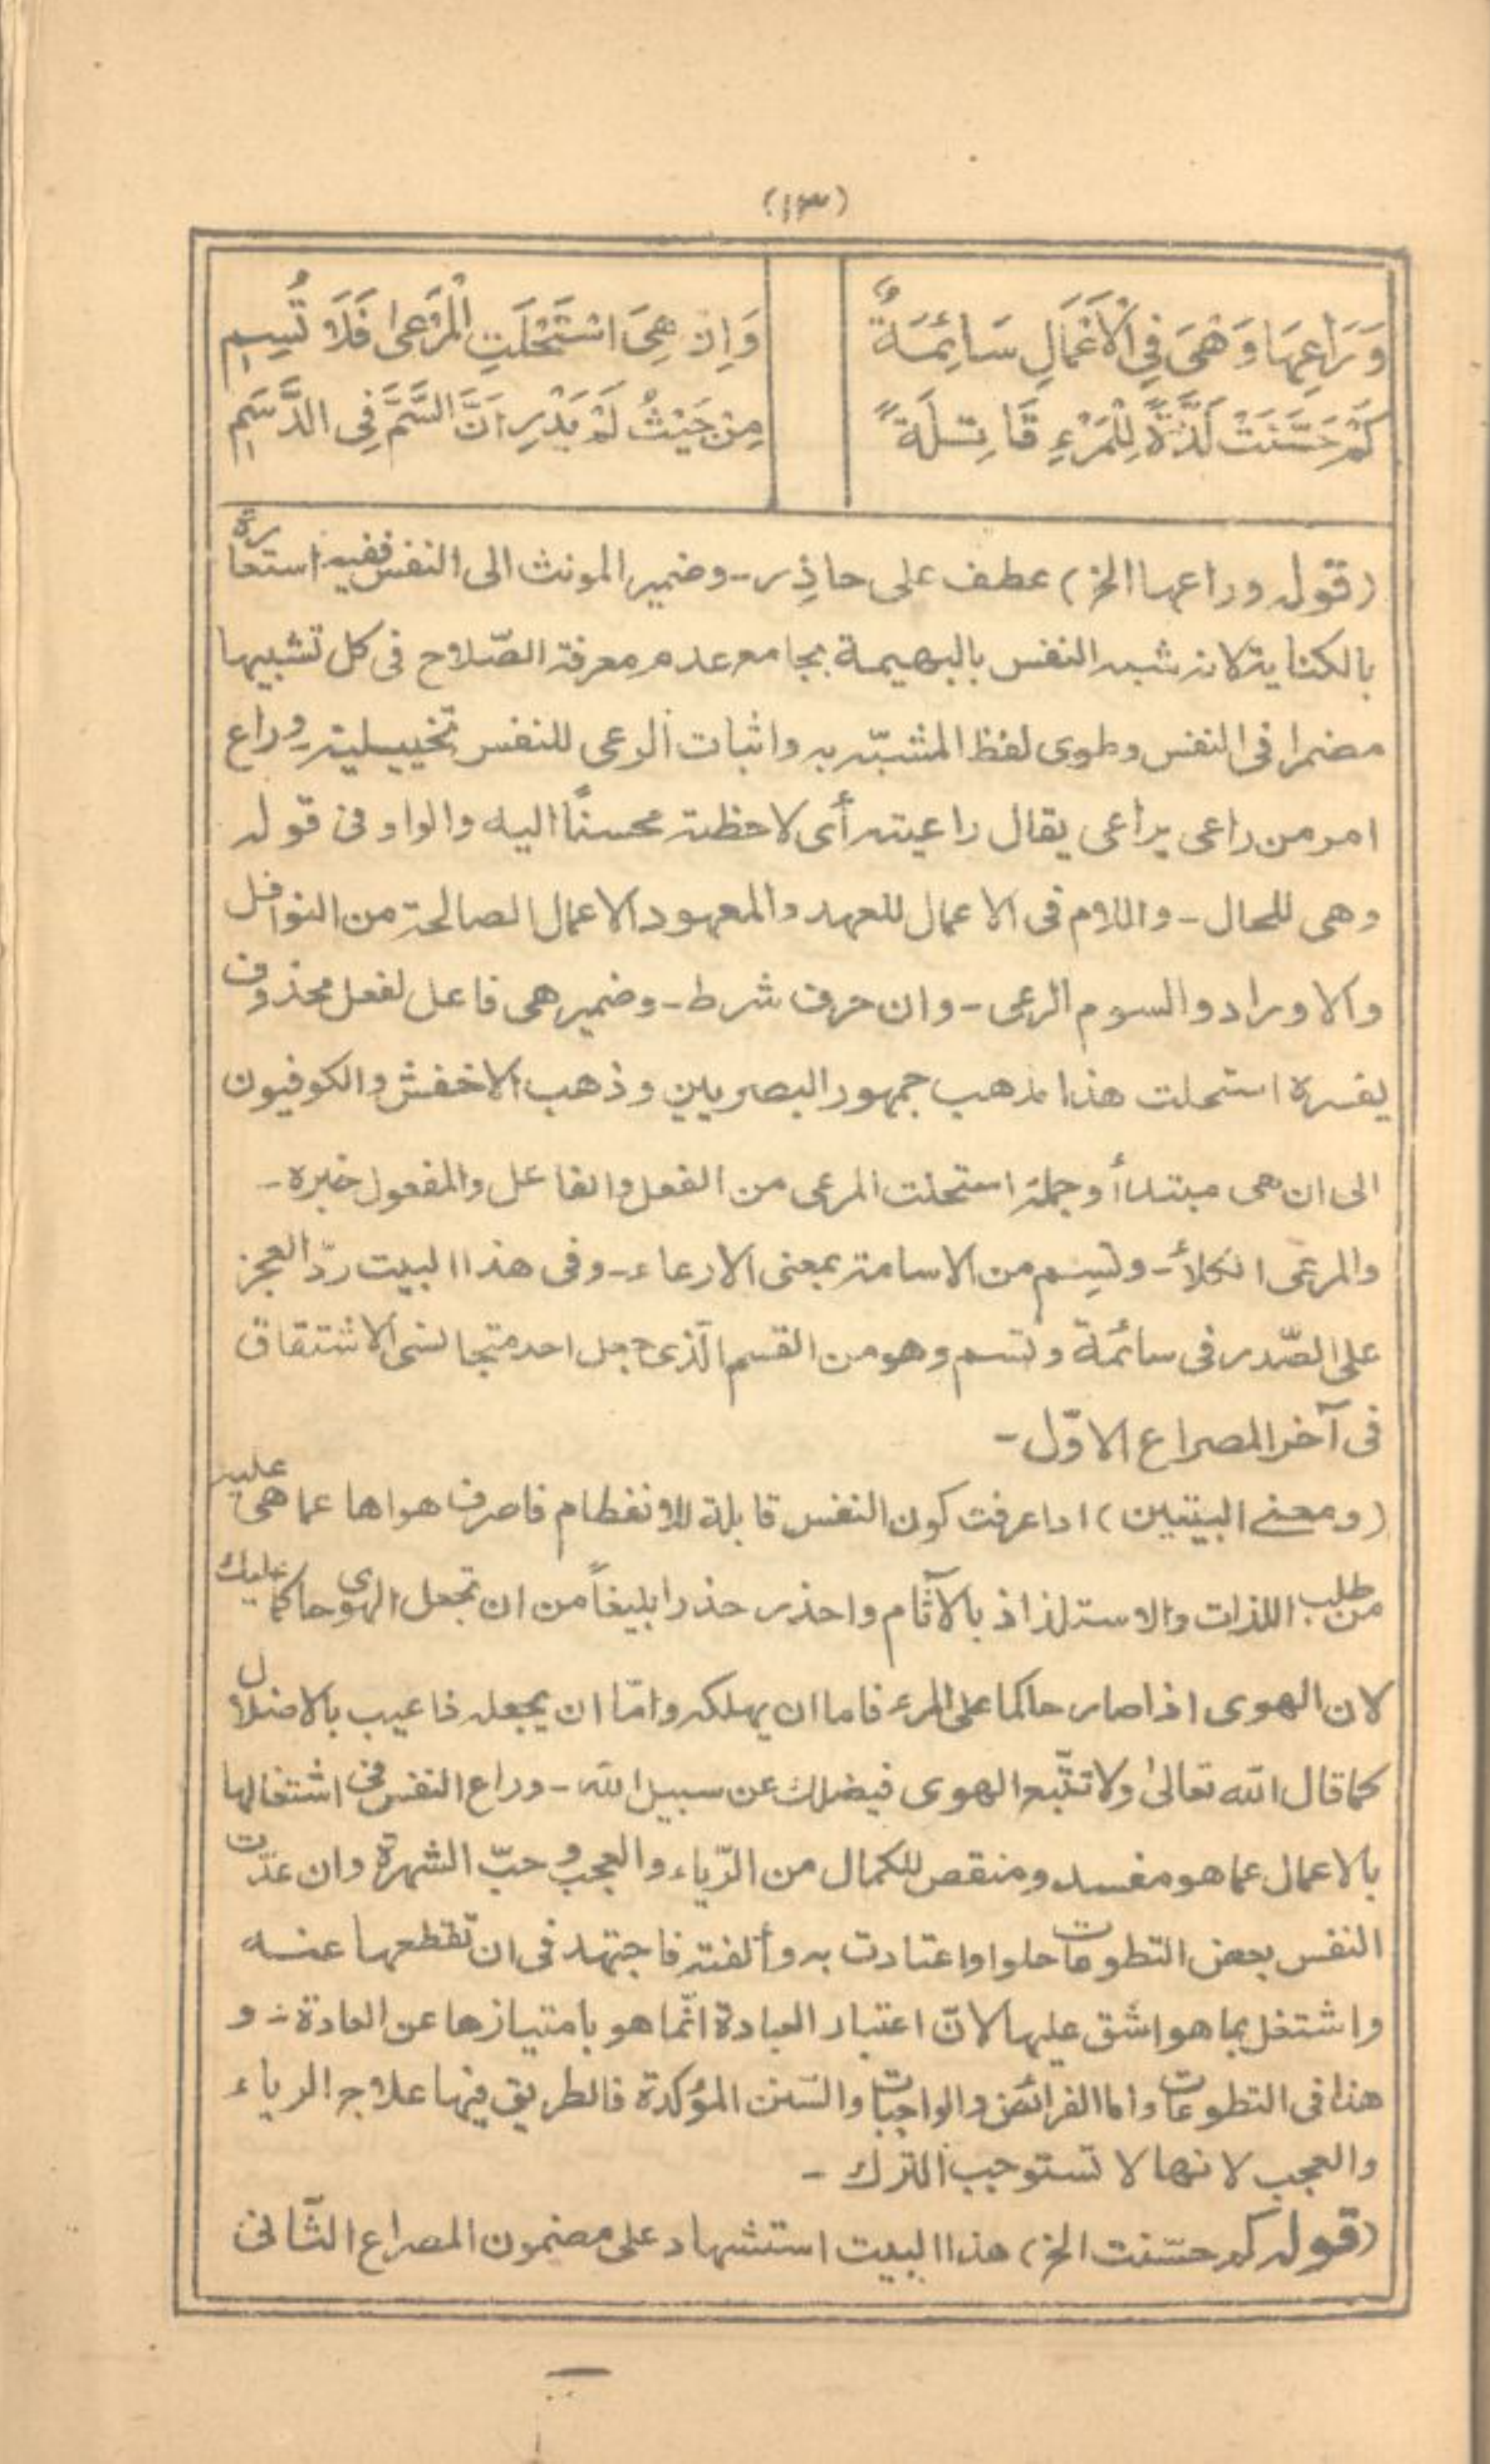 (١٣)
وَرَاعِهَا وَهْىَ فِى الْاَعْمَالِ سَائِمَةٌ
وَاِنْ هِىَ اسْتَحْلَتِ الْمَرْعىٰ فَلَا تُسِمِ
كَمْ حَسَّنَتْ لَذَّةً لِلْمَرْءِ قَاتِلَةً
مِنْ حَيْثُ لَمْ يَدْرِ اَنَّ السَّمَّ فِى الدَّسَمِ
(قوله وراعها الخ) عطف على حاذِر - وضمير المونث الى النفس ففيه استعارة
بالكناية لانه شبه النفس بالبهيمة بجامع عدم معرفة الصّلاح فى كل تشبيها
مضمرا فى النفس وطوى لفظ المشبّه به واثبات الرعى للنفس تخييلية وراع
امر من راعى يراعى يقال راعيته أى لاحظته محسنًا اليه والواو فى قوله
وهى للحال - واللام فى الاعمال للعهد والمعهود الاعمال الصالحة من النوافل
والاوراد والسوم الرعى - وان حرف شرط - وضمير هى فاعل لفعل محذوف
يفسره استحلت هذا مذهب جمهور البصريين وذهب الاخفش والكوفيون
الى ان هى مبتدأ وجملة استحلت المرعى من الفعل والفاعل والمفعول خبره -
والمرعى الكلأ - وتسِم من الاسامة بمعنى الارعاء - وفى هذا البيت ردّ العجز
على الصّدر فى سائمة وتسم وهو من القسم الّذى جعل احد متجانسى الاشتقاق
فى آخر المصراع الاوّل -
(ومعنى البيتين) اذا عرفت كون النفس قابلة للانفطام فاصرف هواها عما هى عليه
من طلب اللذات والاستلذاذ بالآثام واحذر حذرا بليغاً من ان تجعل الهوى حاكما عليك
لان الهوى اذا صار حاكما على المرء فاما ان يهلكه وامّا ان يجعله ذا عيب بالاضلال
كما قال الله تعالىٰ ولا تتّبع الهوى فيضلك عن سبيل الله - وراع النفس فى اشتغالها
بالاعمال عما هو مفسد ومنقص للكمال من الرّياء والعجب وحبّ الشهرة وان عدّت
النفس بعض التطوعات حلوا واعتادت به وألفته فاجتهد فى ان تقطعها عنه
واشتغل بما هو اشق عليها لانّ اعتبار العبادة انّما هو بامتيازها عن العادة - و
هذا فى التطوعات واما الفرائض والواجبات والسّنن المؤكدة فالطريق فيها علاج الرياء
والعجب لانها لا تستوجب الترك -
(قوله كم حسّنت الخ) هذا البيت استشهاد على مضمون المصراع الثّانى